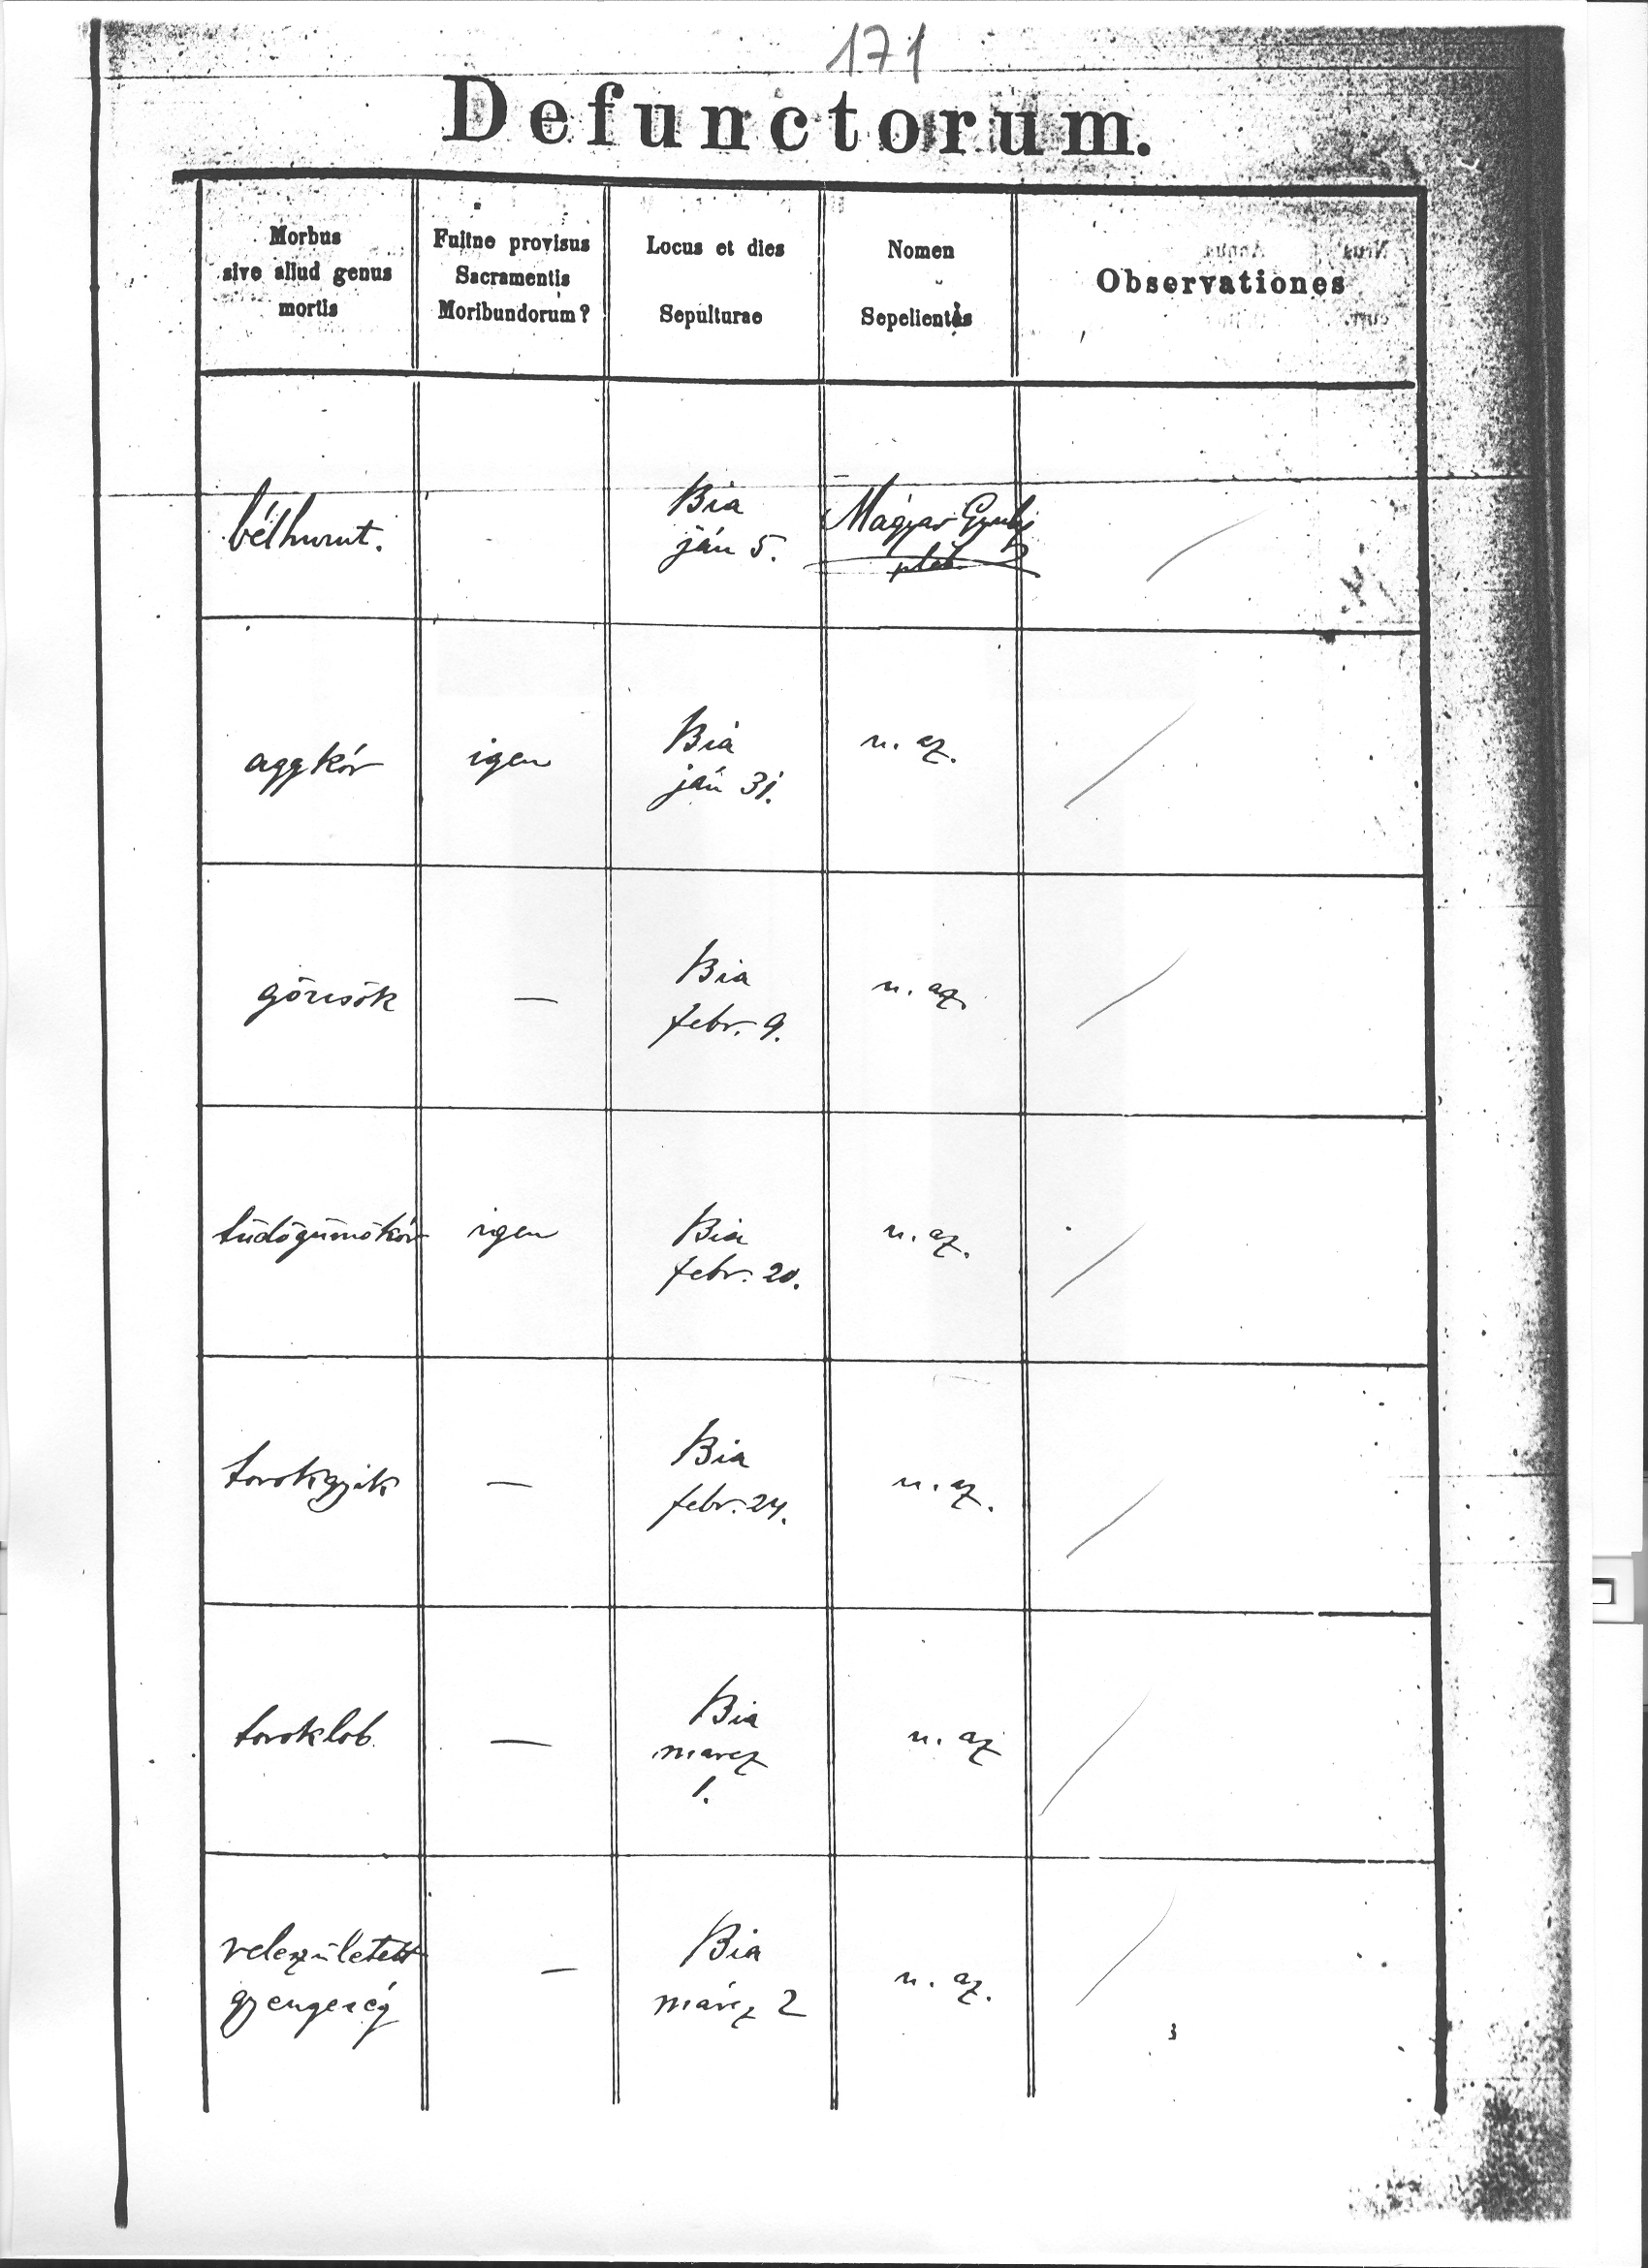 171
Defunctorum.
Morbus
sive aliud genus
mortis
Fuitne provisus
Sacramentis
Moribundorum?
Locus et dies
Sepulturae
Nomen
Sepelientis
Observationes
bélhurut.
Bia
ján 5.
Magyar Gyula
pléb.
aggkór
igen
Bia
ján 31.
u. az.
görcsök
—
Bia
febr. 9.
u. az.
tüdőgümőkór
igen
Bia
febr. 20.
u. az.
torokgyik
—
Bia
febr. 24.
u. az.
toroklob
—
Bia
marcz
1.
u. az
veleszületett
gyengeség
—
Bia
márcz 2
u. az.